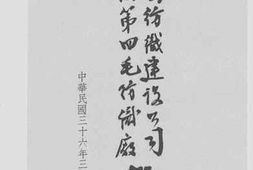 紡織建設公司
第四毛紡織廠
中華民國三十六年三